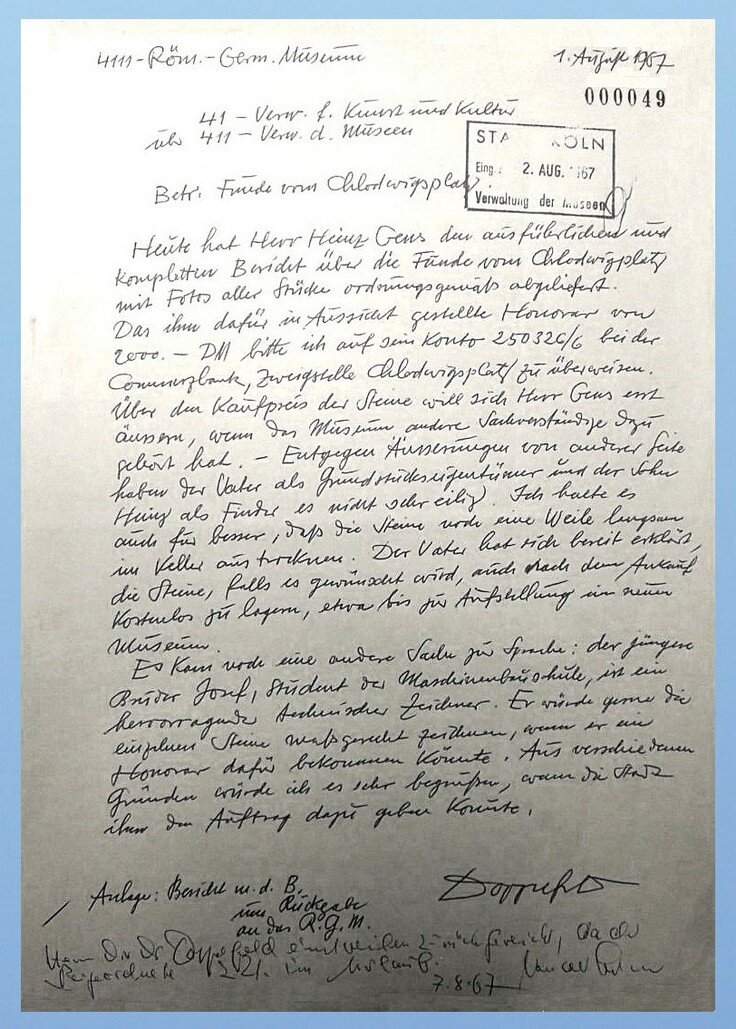 4111 - Röm.- Germ. Museum
1. August 1967
000049
41 - Verw. f. Kunst und Kultur
über 411 - Verw. d. Museen
STA KÖLN
Eing. 2. AUG. 1967
Verwaltung der Museen
Betr. Funde vom Chlodwigsplatz.
Heute hat Herr Heinz Gens den ausführlichen und
kompletten Bericht über die Funde vom Chlodwigplatz
mit Fotos aller Stücke ordnungsgemäß abgeliefert.
Das ihm dafür in Aussicht gestellte Honorar von
2000.- DM bitte ich auf sein Konto 250326/6 bei der
Commerzbank, Zweigstelle Chlodwigsplatz zu überweisen.
Über den Kaufpreis der Steine will sich Herr Gens erst
äussern, wenn das Museum andere Sachverständige dazu
gehört hat. - Entgegen Äusserungen von anderer Seite
haben der Vater als Grundstückseigentümer und der Sohn
Heinz als Finder es nicht sehr eilig. Ich halte es
auch für besser, daß die Steine noch eine Weile langsam
im Keller austrocknen. Der Vater hat sich bereit erklärt,
die Steine, falls es gewünscht wird, auch nach dem Ankauf
kostenlos zu lagern, etwa bis zur Aufstellung im neuen
Museum.
Es kam noch eine andere Sache zur Sprache: der jüngere
Bruder Josef, Student der Maschinenbauschule, ist ein
hervorragender technischer Zeichner. Er würde gerne die
einzelnen Steine maßgerecht zeichnen, wenn er ein
Honorar dafür bekommen könnte. Aus verschiedenen
Gründen würde ich es sehr begrüßen, wenn die Stadt
ihm den Auftrag dazu geben könnte.
Anlage: Bericht m. d. B.
um Rückgabe
an das R.G.M.
Herrn Dir. Dr. Doppelfeld einstweilen zurückgereicht, da der
Beigeordnete z.Zt. im Urlaub.
7.8.67